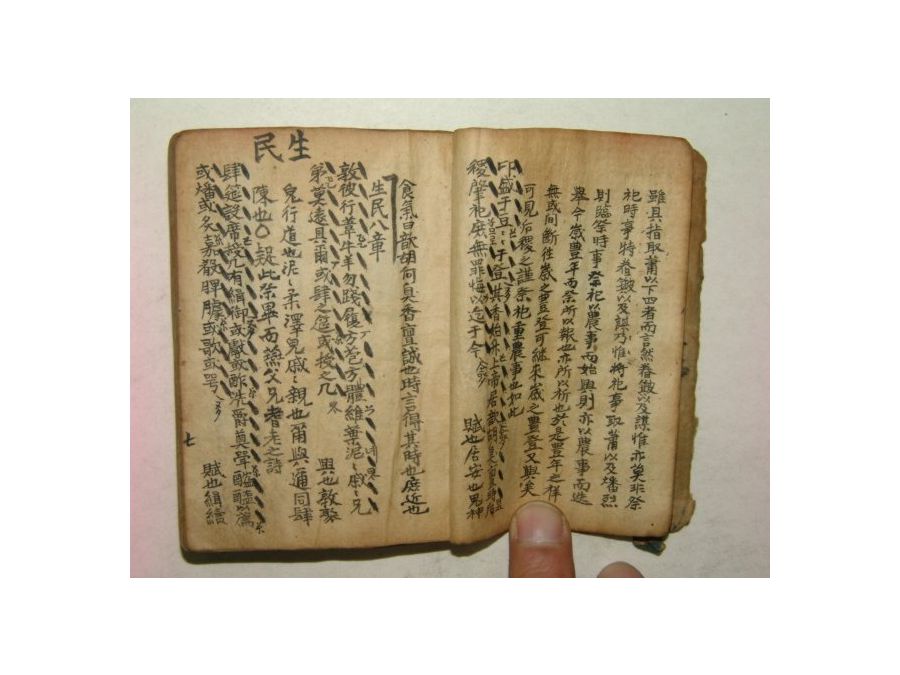 雖具指取蕭以下四者而言然眷數以及謀惟亦莫非祭
祀時事特眷數以及謀乃惟將祀事取蕭以及燔烈
則臨祭時事祭祀以農事而始興則亦以農事而迄
擧今歲豊年而祭所以報也亦所以祈也於是豊年之祥
無或间斷往歲之豊登可継來歲之豊登又與矣
可見后稷之謹祭祀重農事也如此
卬盛于豆〻于登其香始升上帝居歆胡臭亶時后
稷肇祀庶無罪悔以迄于今 賦也居安也鬼神
生民
食氣曰歆胡何臭香亶誠也時言得其時也庶近也
生民八章
敦彼行葦牛羊勿踐履方苞方體維葉泥〻戚〻兄
弟莫遠具爾或肆之筵或授之几 興也敦聚
皃行道也泥〻柔澤皃戚〻親也爾與邇同肆
陳也○疑此祭畢而燕父兄耆老之詩
肆筵設席授几有緝御或獻或酢洗爵奠斝醓醢以薦
或燔或炙嘉殽脾臄或歌或咢 賦也緝續
七